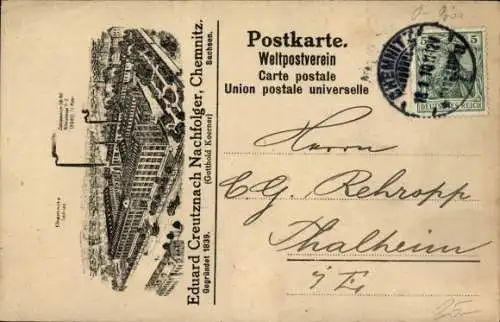 Postkarte.
Weltpostverein
Carte postale
Union postale universelle
CHEMNITZ
5 5
DEUTSCHES REICH
Eduard Creutznach Nachfolger, Chemnitz.
(Gotthold Koerner) Sachsen.
Gegründet 1839.
Herrn
CG. Rehropp
Thalheim
i/E.
25-